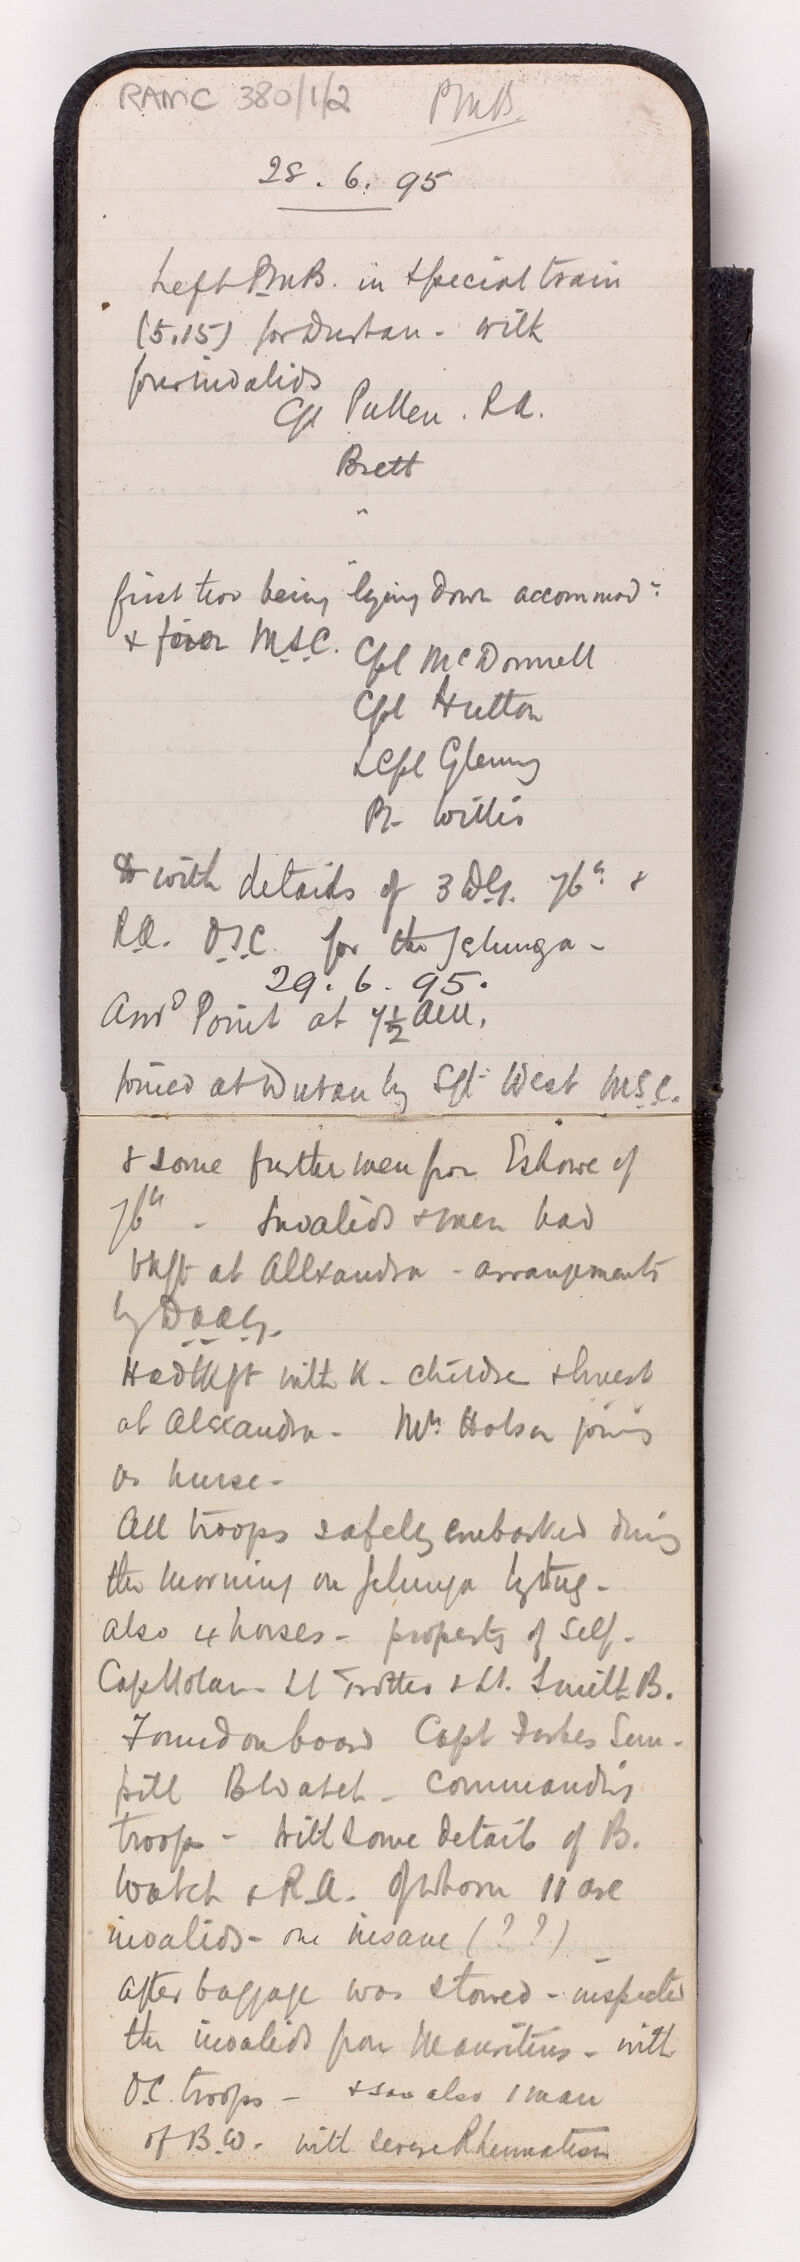 RAMC 380/1/2 PMB
28.6.95
Left PMB. in special train
(5.15) for Durban - with
four invalids
Cpl Pullen. R.A.
Brett
"
"
first two being lying down accommod:
& four M.S.C. Cpl McDonnell
Cpl Hutton
LCpl Glenny
Pr Willis
& with details of 3 D.G. 76th &
R.A. O.S.C. for the Jelunga -
29.6.95.
Arrd Point at 7½ AM.
Joined at Durban by Sgt West M.S.C.
& some further men from Eshowe of
76th - Invalids & men had
bkft at Alexandra - arrangements
by D.A.A.G.
Had bkft with K - children &
at Alexandra - Mrs Hobson joins
as nurse -
All troops safely embarked during
the morning on Jelunga by tug -
also 4 horses - property of self -
Lt Trotter & Lt. Smith B.
Found on board Capt Forbes Sem-
pill B Watch - commanding
troops - with some details of B.
Watch & R.A. of whom 11 are
invalids - one insane (??) -
After baggage was stowed - inspected
the invalids from Mauritius - with
O.C. troops - & saw also 1 man
of B.W. with severe Rheumatism